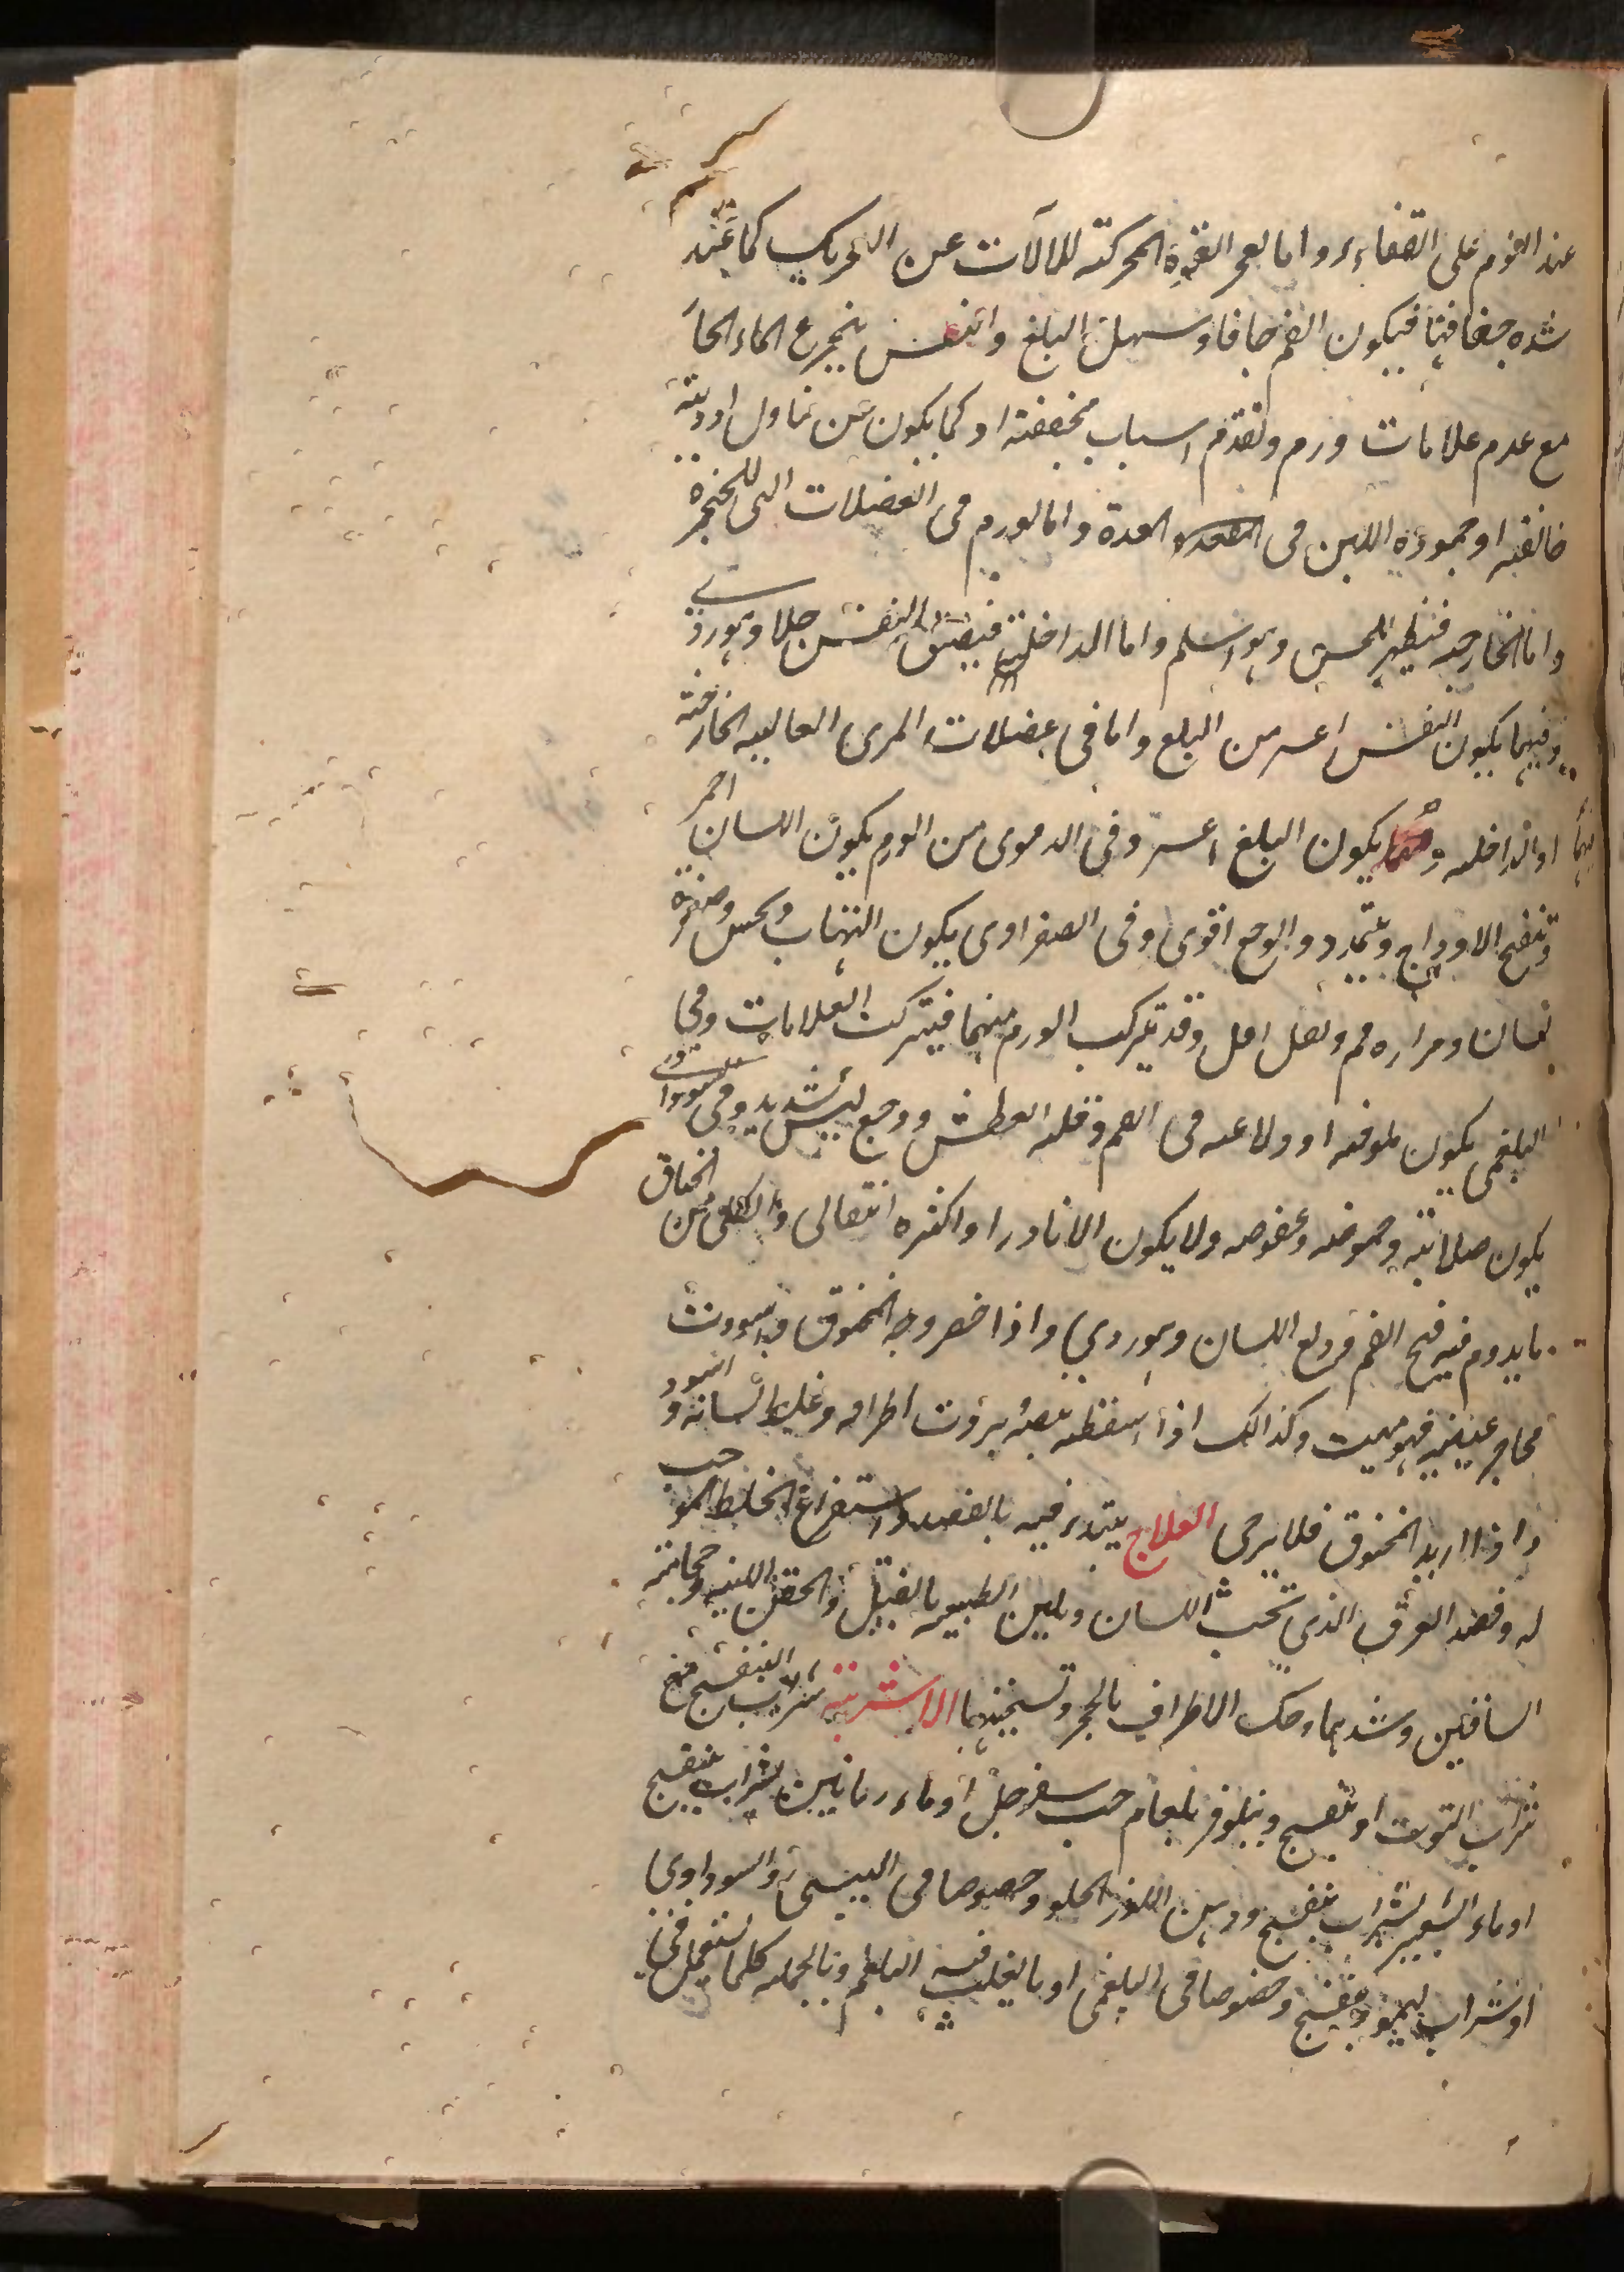 عند النوم على القفاء واما لعجز القوة المحركة للآلات عن التحريك كما عند
شده جفافها فيكون الفم جافا وسهل البلغ والنفس بتجرع الماء الحا
مع عدم علامات ورم وتقدم اسباب مجففة او كما يكون عن تناول ادوية
خانقه او جمود اللبن فى المعدة واما لورم فى العضلات التى للحنجرة
واما الخارجه فيظهر للحس وهو اسلم واما الداخلة فيضيق النفس جدا وهو ردى
وفيهما يكون النفس اعسر من البلع واما فى عضلات المرى العالية الخارجة
او الداخله وفيهما يكون البلغ اعسر وفى الدموى من الورم يكون اللسان احمر
وتنفخ الاوداج وتمدد والوجع اقوى وفى الصفراوى يكون التهاب ويحس وصفرة
لسان ومراره فم وثقل اقل وقد يتركب الورم منهما فيتركب العلامات وفى
البلغمى يكون ملوحه او ولاعه فى الفم وقله العطش ووجع ليس شديد وفى السوداوى
يكون صلابته وحموضه وعفوصه ولا يكون الا نادرا واكثره انتقالى والكلبى من الخناق
ما يدوم فيه فتح الفم ودلع اللسان وهو ردى واذا خضر وجه المخنوق واسودت
محاجر عينيه فهو ميت وكذالك اذا سقط نبضه بردت اطرافه وغلظ لسانه واسود
واذا اربد المخنوق فلا يرجى العلاج يبتدء فيه بالفصد واستفراغ الخلط الموجب
له وفصد العرق الذى تحت اللسان وتليين الطبيعه بالفتيل والحقن اللينه وحجامة
الساقين وشدهما وحك الاطراف بالحجر وتسخينها الاشربة شراب البنفسج مع
شراب التوت او بنفسج ونيلوفر بلعاب حب سفرجل او ماء رمانين بشراب بنفسج
او ماء الشعير بشراب بنفسج ودهن اللوز الحلو وخصوصا فى اليبسى والسوداوى
او شراب ليمو وبنفسج وخصوصا فى البلغمى او ما يغلب فيه البلغم وبالجمله كلما يستعمل فى